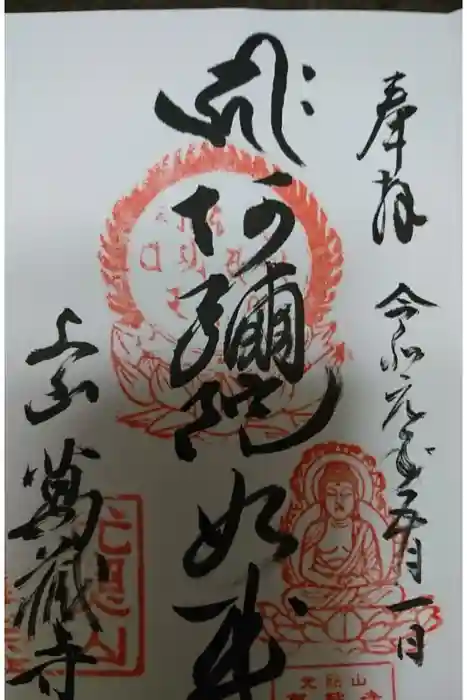 奉拝
令和元年五月一日
阿彌陀如来
上山 萬蔵寺